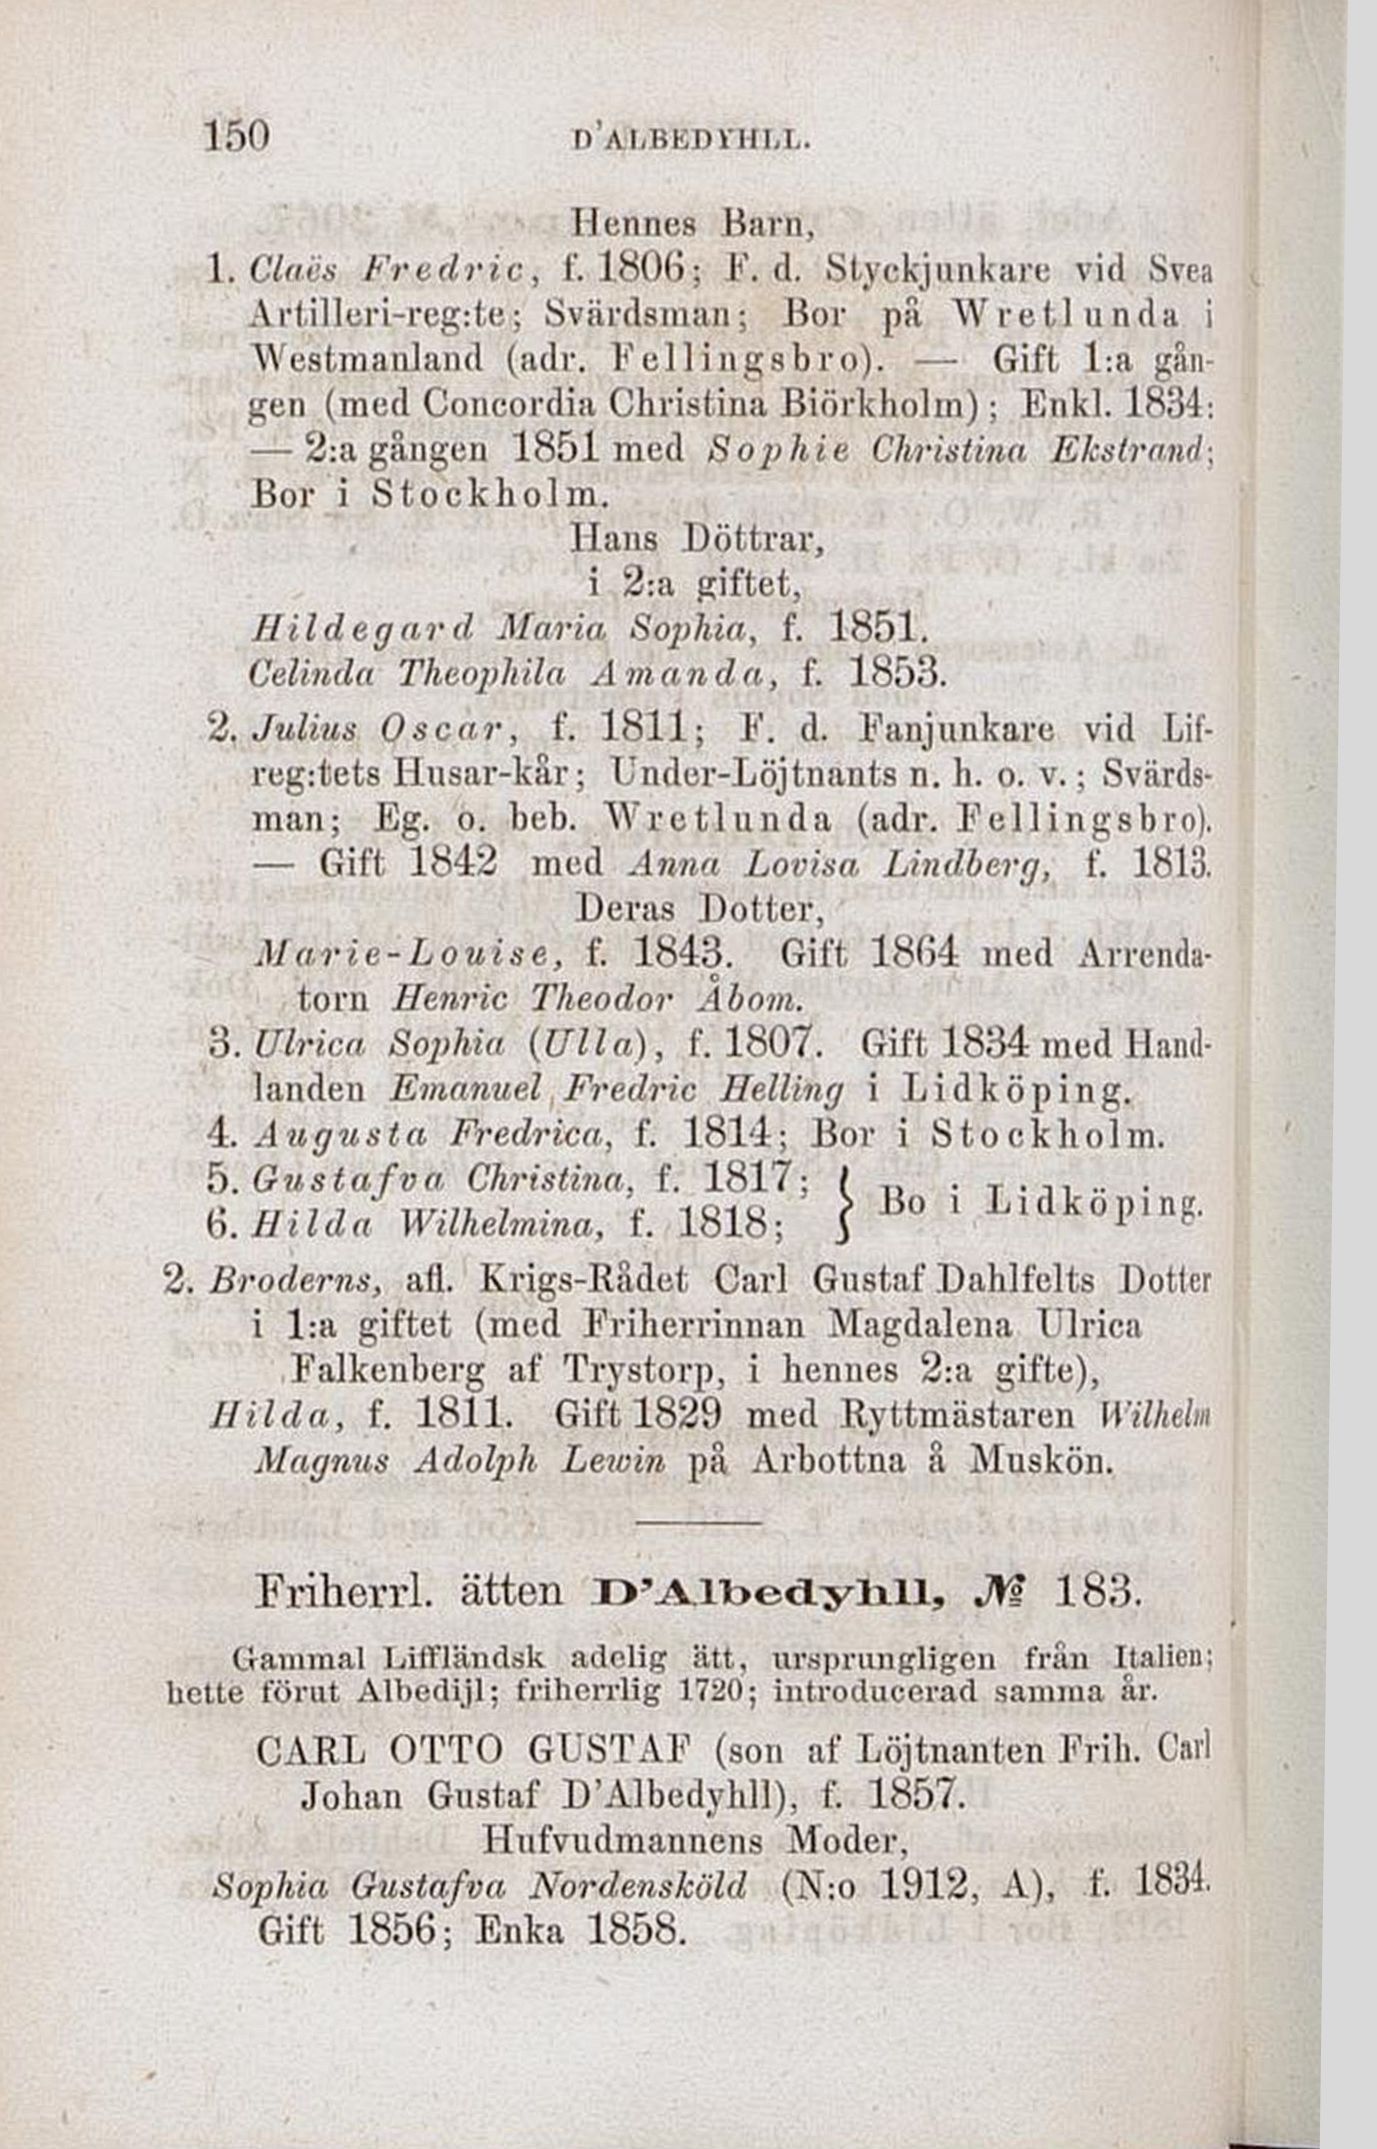 150
D'ALBEDYHLL.
Hennes Barn,
1. Claës Fredric, f. 1806; F. d. Styckjunkare vid Svea
Artilleri-reg:te; Svärdsman; Bor på Wretlunda i
Westmanland (adr. Fellingsbro). — Gift 1:a gån-
gen (med Concordia Christina Biörkholm); Enkl. 1834:
— 2:a gången 1851 med Sophie Christina Ekstrand;
Bor i Stockholm.
Hans Döttrar,
i 2:a giftet,
Hildegard Maria Sophia, f. 1851.
Celinda Theophila Amanda, f. 1853.
2. Julius Oscar, f. 1811; F. d. Fanjunkare vid Lif-
reg:tets Husar-kår; Under-Löjtnants n. h. o. v.; Svärds-
man; Eg. o. beb. Wretlunda (adr. Fellingsbro).
— Gift 1842 med Anna Lovisa Lindberg, f. 1813.
Deras Dotter,
Marie-Louise, f. 1843. Gift 1864 med Arrenda-
torn Henric Theodor Åbom.
3. Ulrica Sophia (Ulla), f. 1807. Gift 1834 med Hand-
landen Emanuel Fredric Helling i Lidköping.
4. Augusta Fredrica, f. 1814; Bor i Stockholm.
5. Gustafva Christina, f. 1817;
6. Hilda Wilhelmina, f. 1818; } Bo i Lidköping.
2. Broderns, afl. Krigs-Rådet Carl Gustaf Dahlfelts Dotter
i 1:a giftet (med Friherrinnan Magdalena Ulrica
Falkenberg af Trystorp, i hennes 2:a gifte),
Hilda, f. 1811. Gift 1829 med Ryttmästaren Wilhelm
Magnus Adolph Lewin på Arbottna å Muskön.
Friherrl. ätten D'Albedyhll, № 183.
Gammal Liffländsk adelig ätt, ursprungligen från Italien;
hette förut Albedijl; friherrlig 1720; introducerad samma år.
CARL OTTO GUSTAF (son af Löjtnanten Frih. Carl
Johan Gustaf D'Albedyhll), f. 1857.
Hufvudmannens Moder,
Sophia Gustafva Nordensköld (N:o 1912, A), f. 1834.
Gift 1856; Enka 1858.